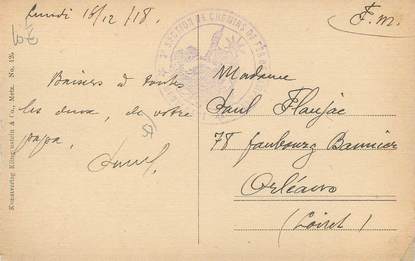 Lundi 16/12/18.
F.M.
10 €
Baisers à toutes
les deux, de votre
papa,
Paul
3e SECTION DE CHEMINS DE FER
Madame
Paul Flaujac
78 faubourg Bannier
Orléans
(Loiret)
Kunstverlag Klingenstein & Co., Metz. No. 125